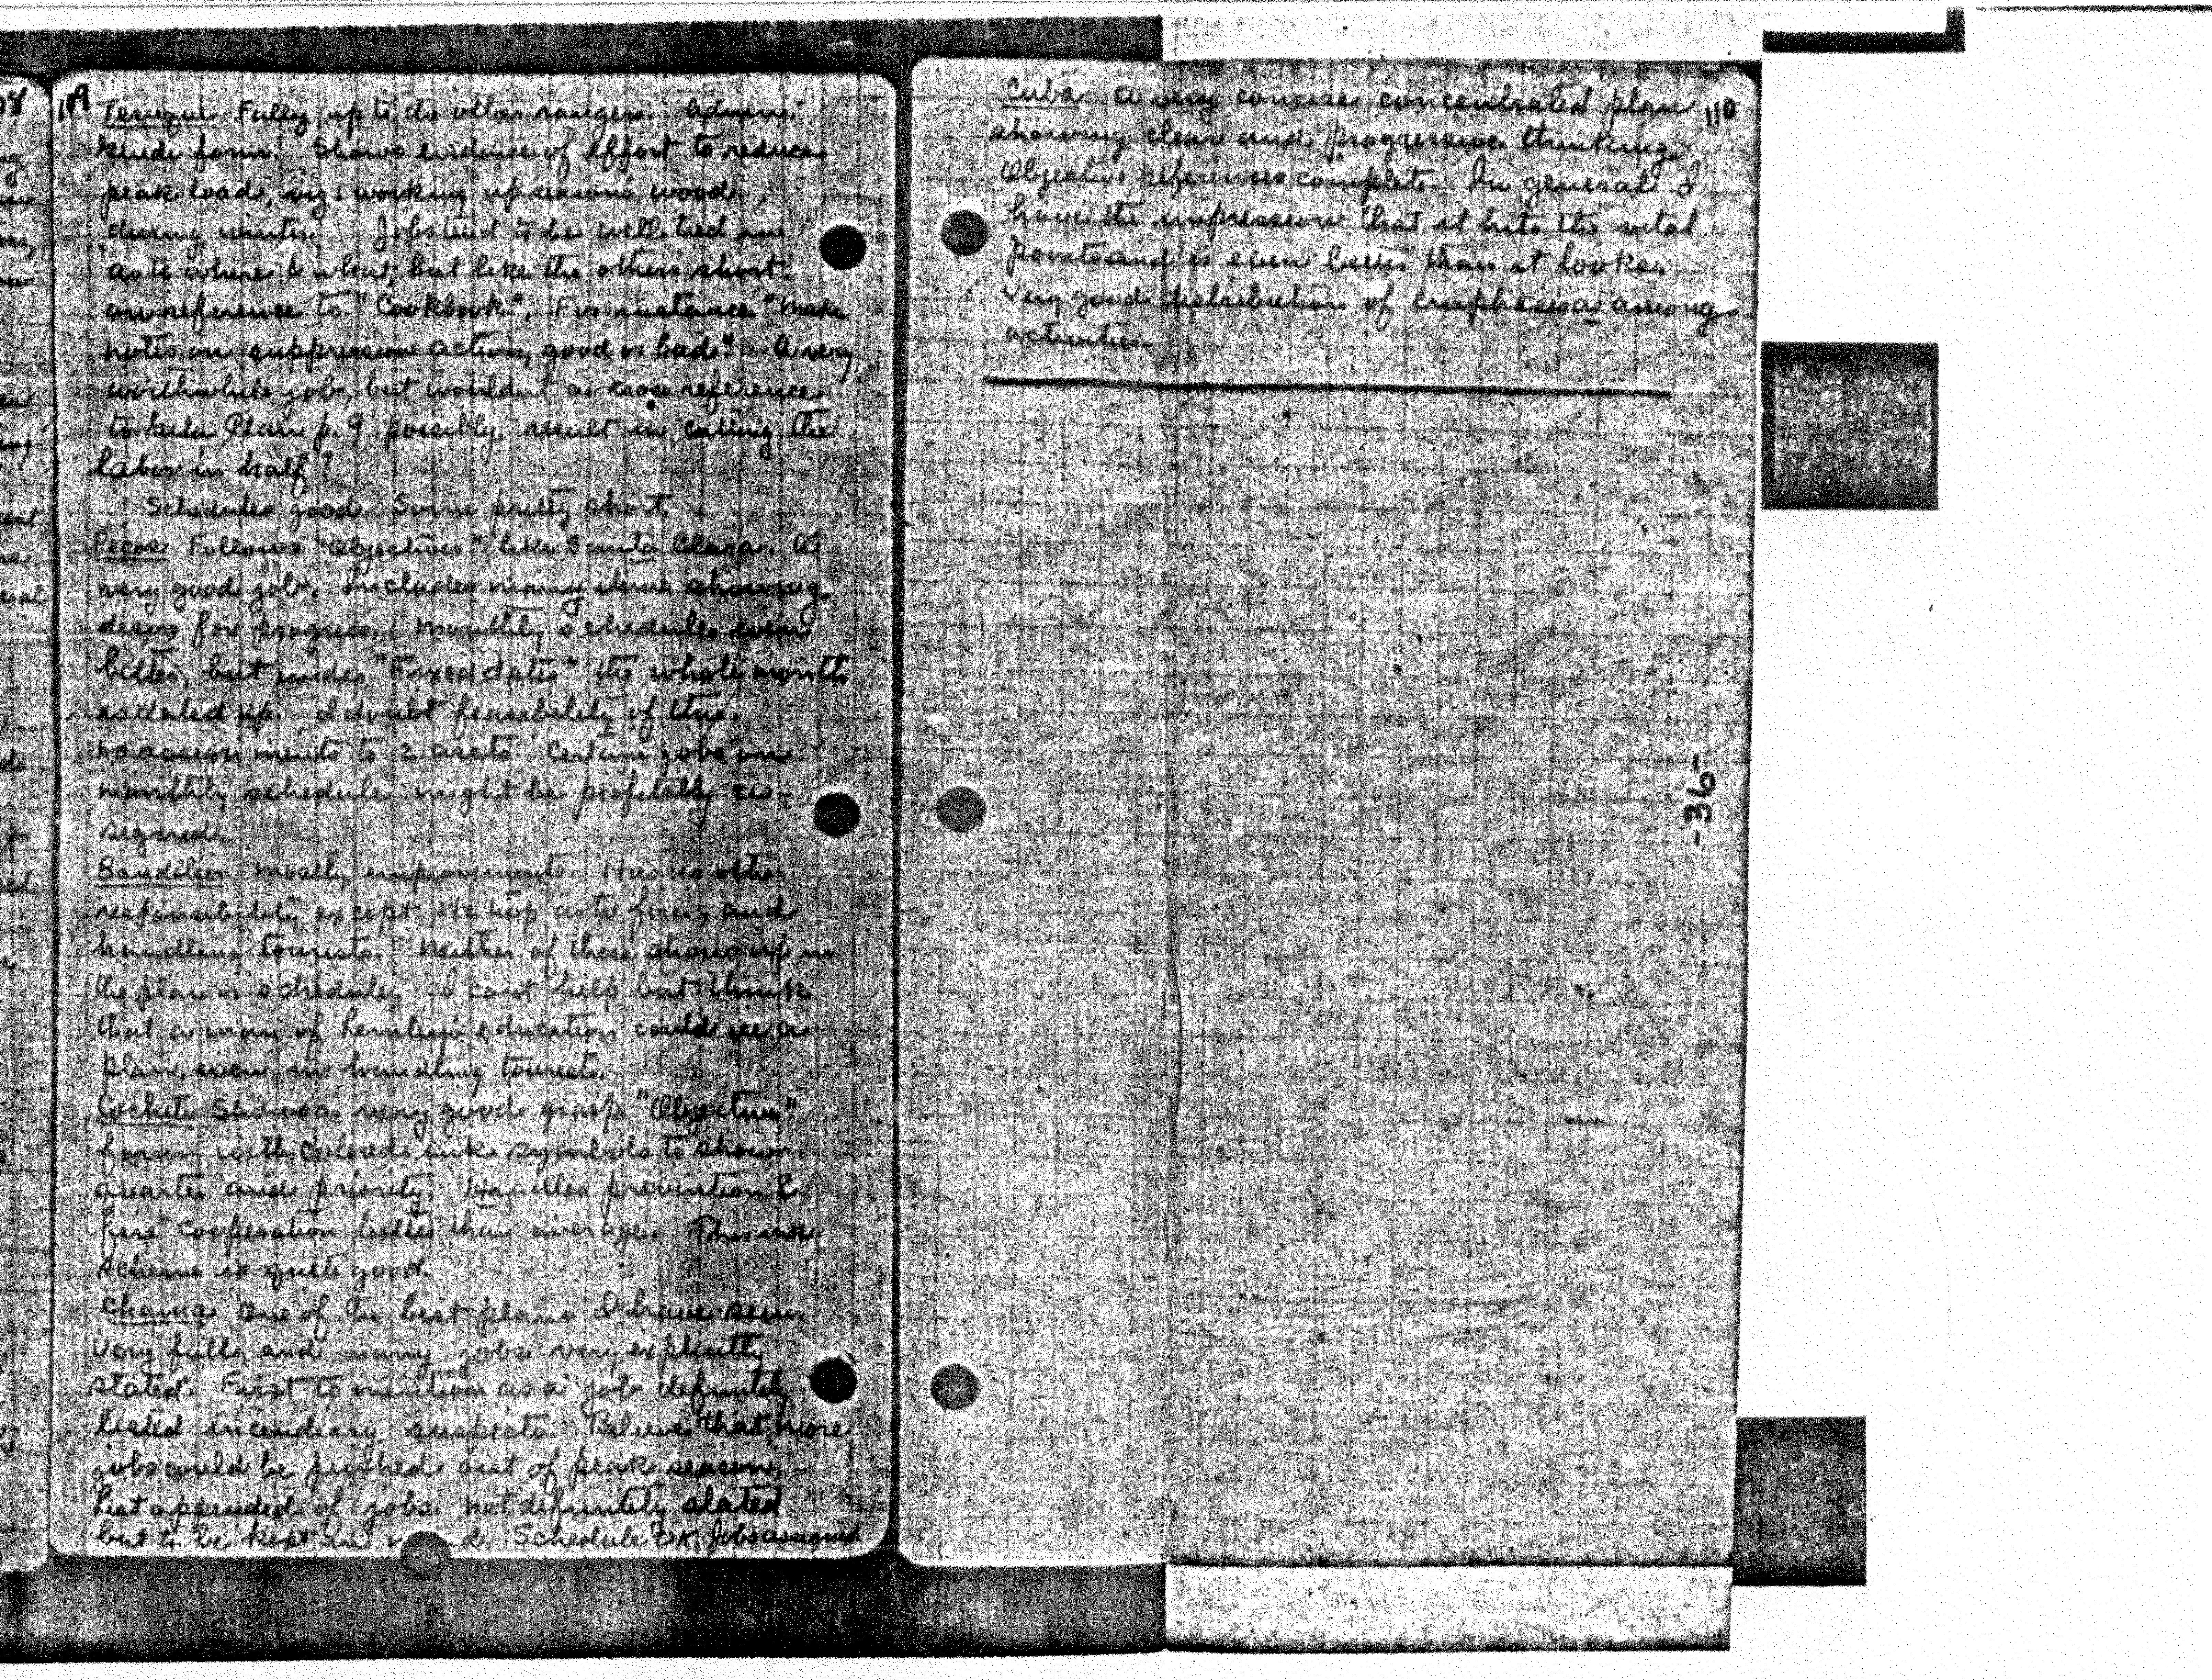 109
Tesuque Fully up to the other rangers. Admin.
Guide form. Shows evidence of effort to reduce
peak load, viz: working up season's wood
during winter. Jobs tend to be well tied in
as to where & what, but like the others short
on reference to "Cookbook". For instance "Make
notes on suppression action, good or bad." A very
worthwhile job, but wouldnt a cross reference
to Gila Plan p. 9 possibly result in cutting the
labor in half?
Schedules good. Some pretty short.
Pecos Follows "Objectives" like Santa Clara. A
very good job. Includes many items showing
desire for progress. Monthly schedules even
better, but under "Fixed dates" the whole month
is dated up. I doubt feasibility of this.
No assignments to 2 assts. Certain jobs on
monthly schedule might be profitably as-
signed.
Bandelier Mostly improvements. Has no other
responsibility except as to fire, and
handling tourists. Neither of these shows up in
the plan or schedule. I cant help but think
that a man of education could see a
plan, even in handling tourists.
Cochiti Shows a very good grasp. "Objective"
form with colored ink symbols to show
quarter and priority. Handles prevention &
fire cooperation better than average. This ink
scheme is quite good.
Chama One of the best plans I have seen.
Very full, and many jobs very explicitly
stated. First to mention as a job definitely
listed incendiary suspects. Believe that more
jobs could be pushed out of peak season.
List appended of jobs not definitely slated
but to be kept in Schedule OK. Jobs assigned.
110
Cuba A very concise concentrated plan
showing clear and progressive thinking.
Objective references complete. In general I
have the impression that it hits the vital
points and is even better than it looks.
Very good distribution of emphasis as among
activities.
-36-